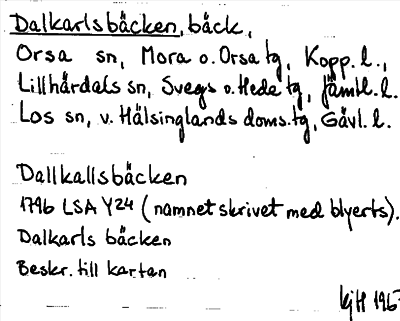 Dalkarlsbäcken, bäck,
Orsa sn, Mora o. Orsa tg, Kopp. l.,
Lillhärdals sn, Svegs o. Hede tg, Jämtl. l.
Los sn, v. Hälsinglands doms. tg, Gävl. l.
Dallkallsbäcken
1796 LSA Y24 (namnet skrivet med blyerts).
Dalkarls bäcken
Beskr. till kartan
KjH 196